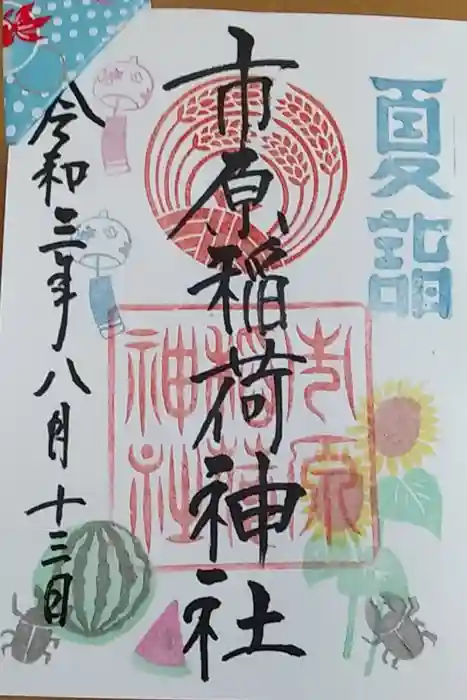 夏詣
市原稲荷神社
市原稲荷神社
令和三年八月十三日